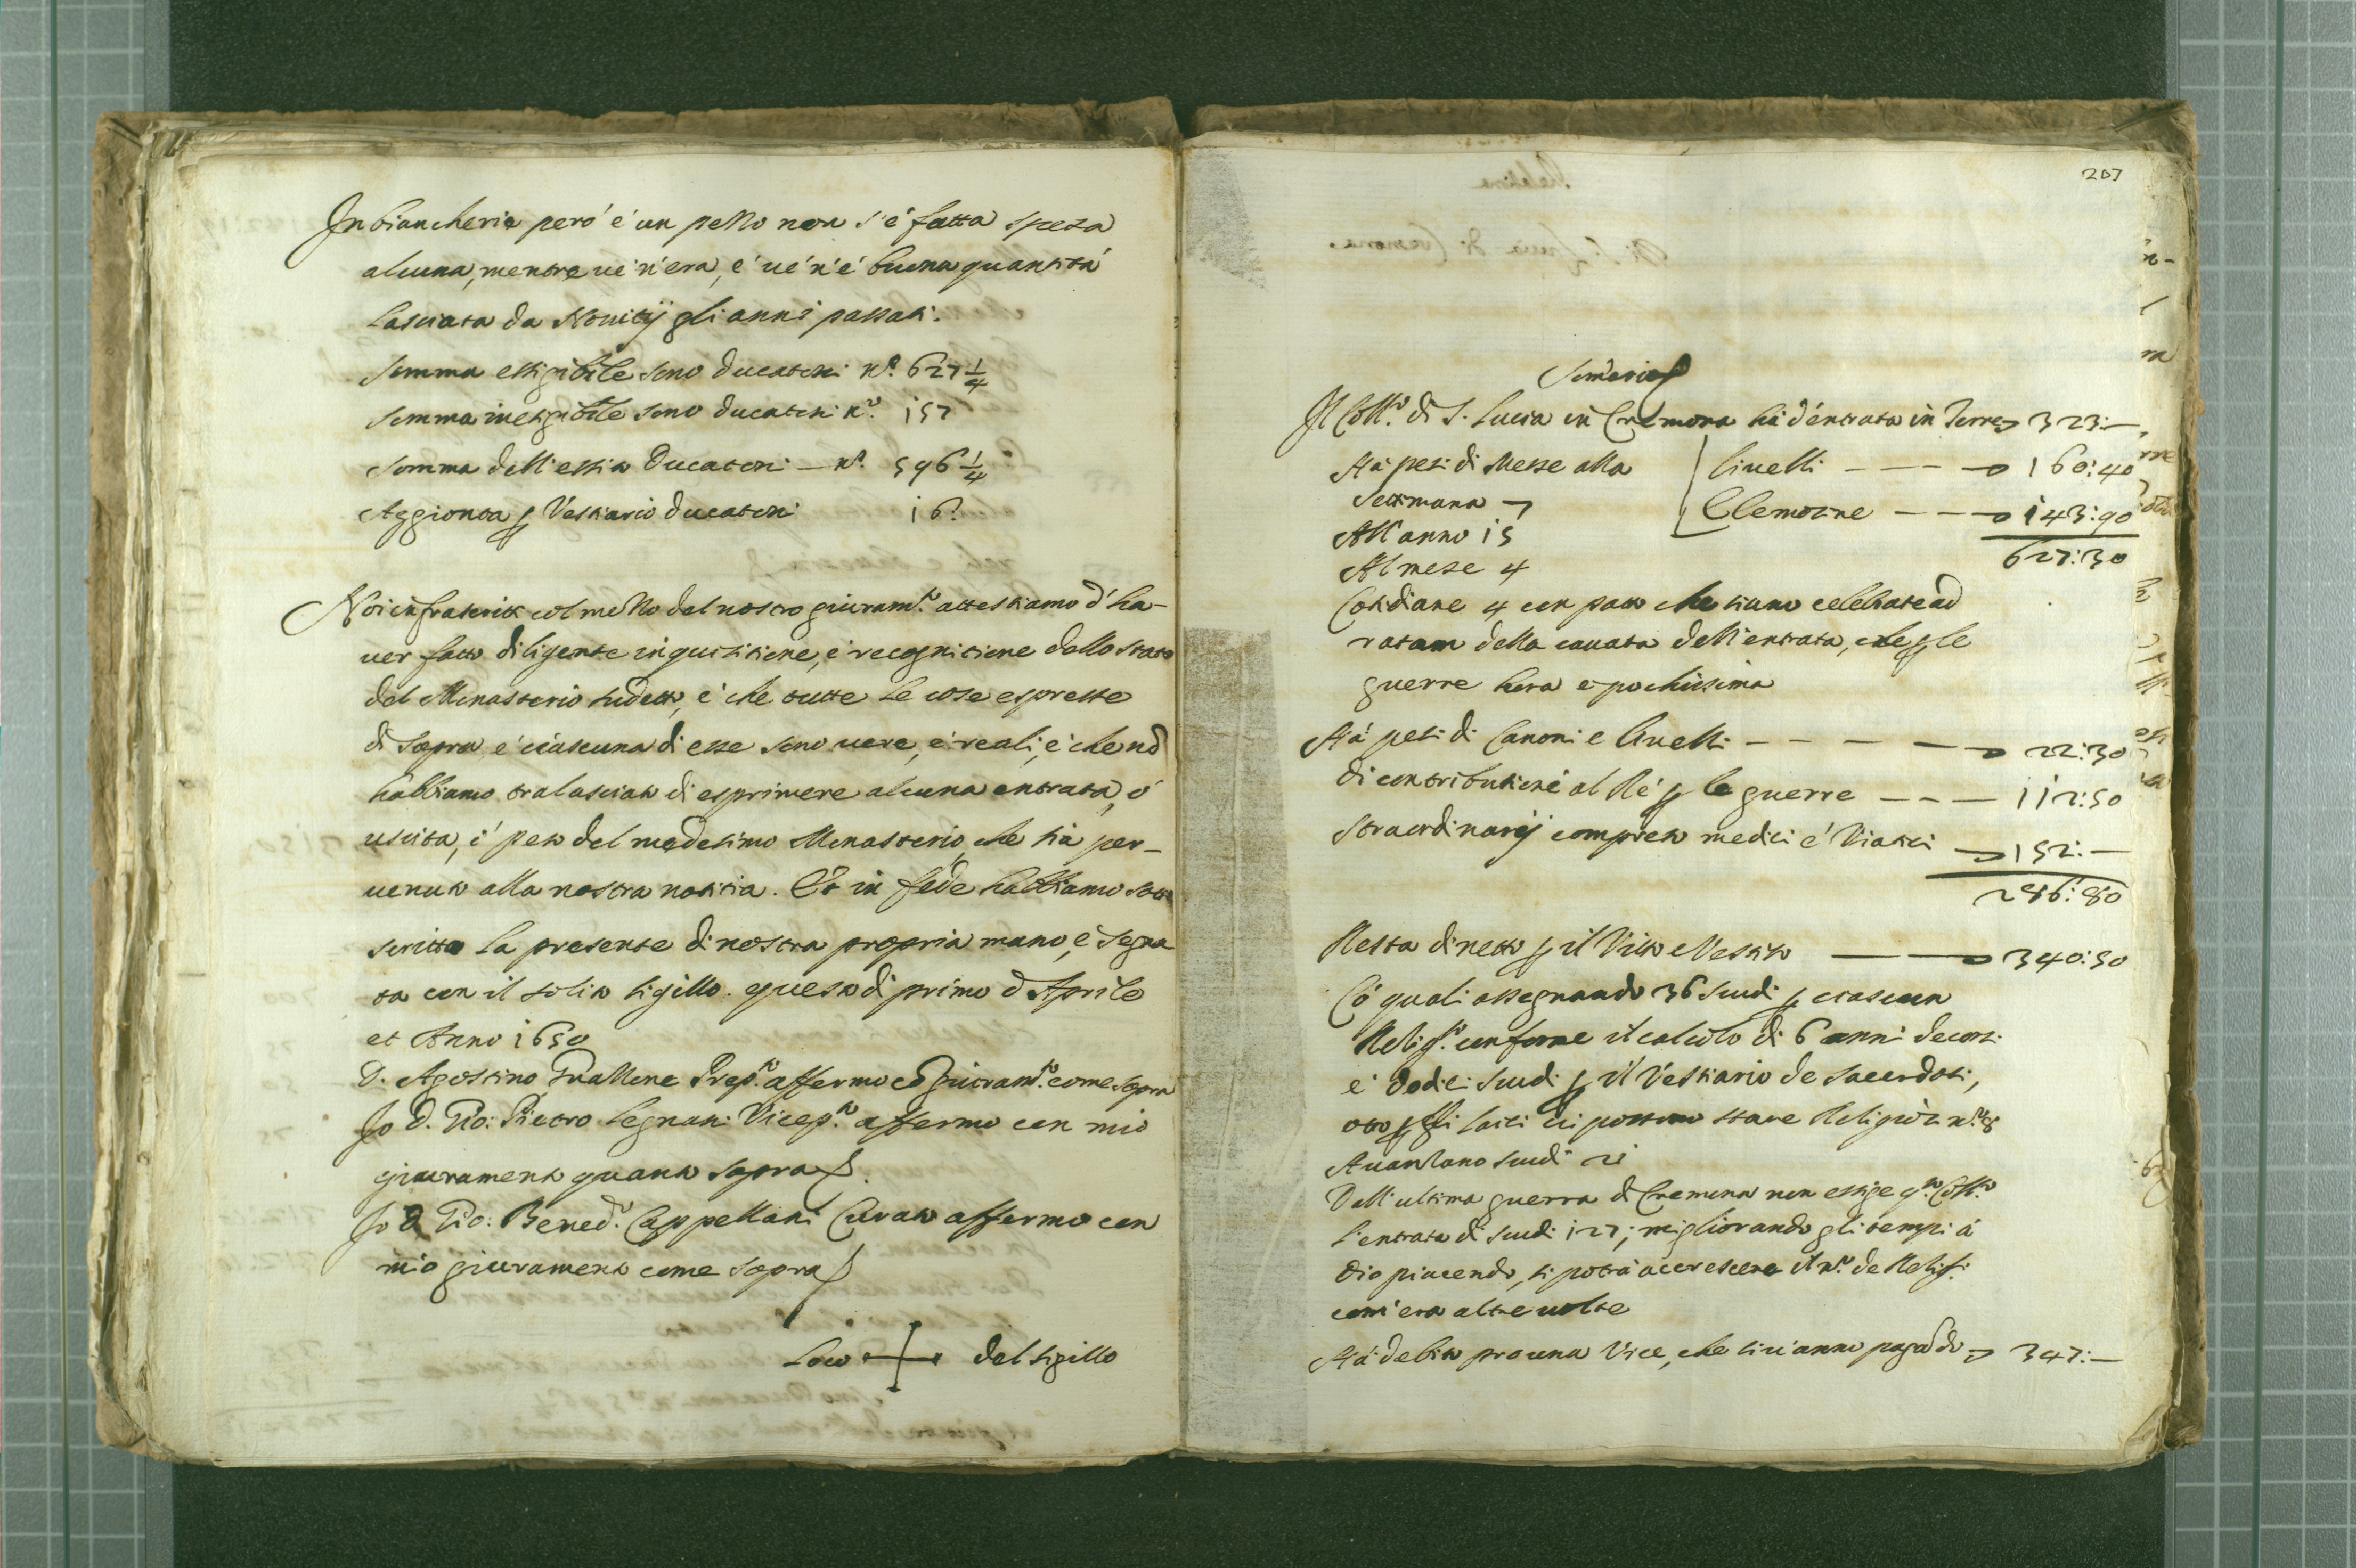 In biancheria però è un pezzo non s'è fatta speza
alcuna, mentre ve n'era, e ve n'è buona quantità
lasciata da Novitij gli anni passati.
Somma essigibile sono ducatoni nº. 627 1/4
Somma inesigibile sono ducatoni nº. 157
Somma dell'essito Ducatoni — nº. 596 1/4
Aggionta p Vestiario ducatoni 16.
Noi infrascritti col mezzo del nostro giuramto. attestiamo d'ha-
ver fatto diligente inquisitione, e recognitione dello stato
del Monasterio sudetto, e che tutte le cose espresse
di sopra e ciascuna di esse sono vere, e reali, e che nō
habbiamo tralasciato di esprimere alcuna entrata, ò
uscita, ò peso del medesimo Monasterio, che sia per-
venuto alla nostra notitia. Et in fede habbiamo sotto
scritto la presente di nostra propria mano, e segna
ta con il solito sigillo. questo dì primo d'Aprile
et Anno 1650
D. Agostino Prepto. affermo cō giuramto. come sopra
Io D. Gio: Pietro Legnani Vicepto. affermo con mio
giuramento quanto sopra
Io D Gio: Bened.º Cappellani Curato affermo con
mio giuramento come sopra
Loco + del sigillo
207
Il Collº. di S. Lucia in Cremona hà d'entrata in Terre 323:—
Hà pesi di Messe alla Livelli — — — 160:40
Settimana 7 Elemosine — — — 143:90
All'anno 15
Al mese 4 627:30
Cotidiane 4 con patto che siano celebrate ad
ratam della cavata dell'entrata, che p le
guerre hora è pochissima
Hà pesi di Canoni e livelli — — — — 22:30
di contributione al Rè p le guerre — — — 112:50
straordinarij compreso medici e Viatici 152:—
286:80
Resta di netto p il Vitto e Vestito — — 340:50
Cō quali assegnando 36 scudi p ciascun
Religso. conforme il calcolo di 6 anni decorsi
e dodeci scudi p il Vestiario de sacerdoti,
otto p gli laici vi possono stare Religiosi nº. 8
Avanzano scudi 21
Dall'ultima guerra di Cremona non essige qto. Collº
l'entrata di scudi 127; migliorando gli tempi à
Dio piacendo, si potrà accrescere il nº. de Religsi.
com'era altre volte
Hà debito pro una Vice, che si và anno pagādo 347:—